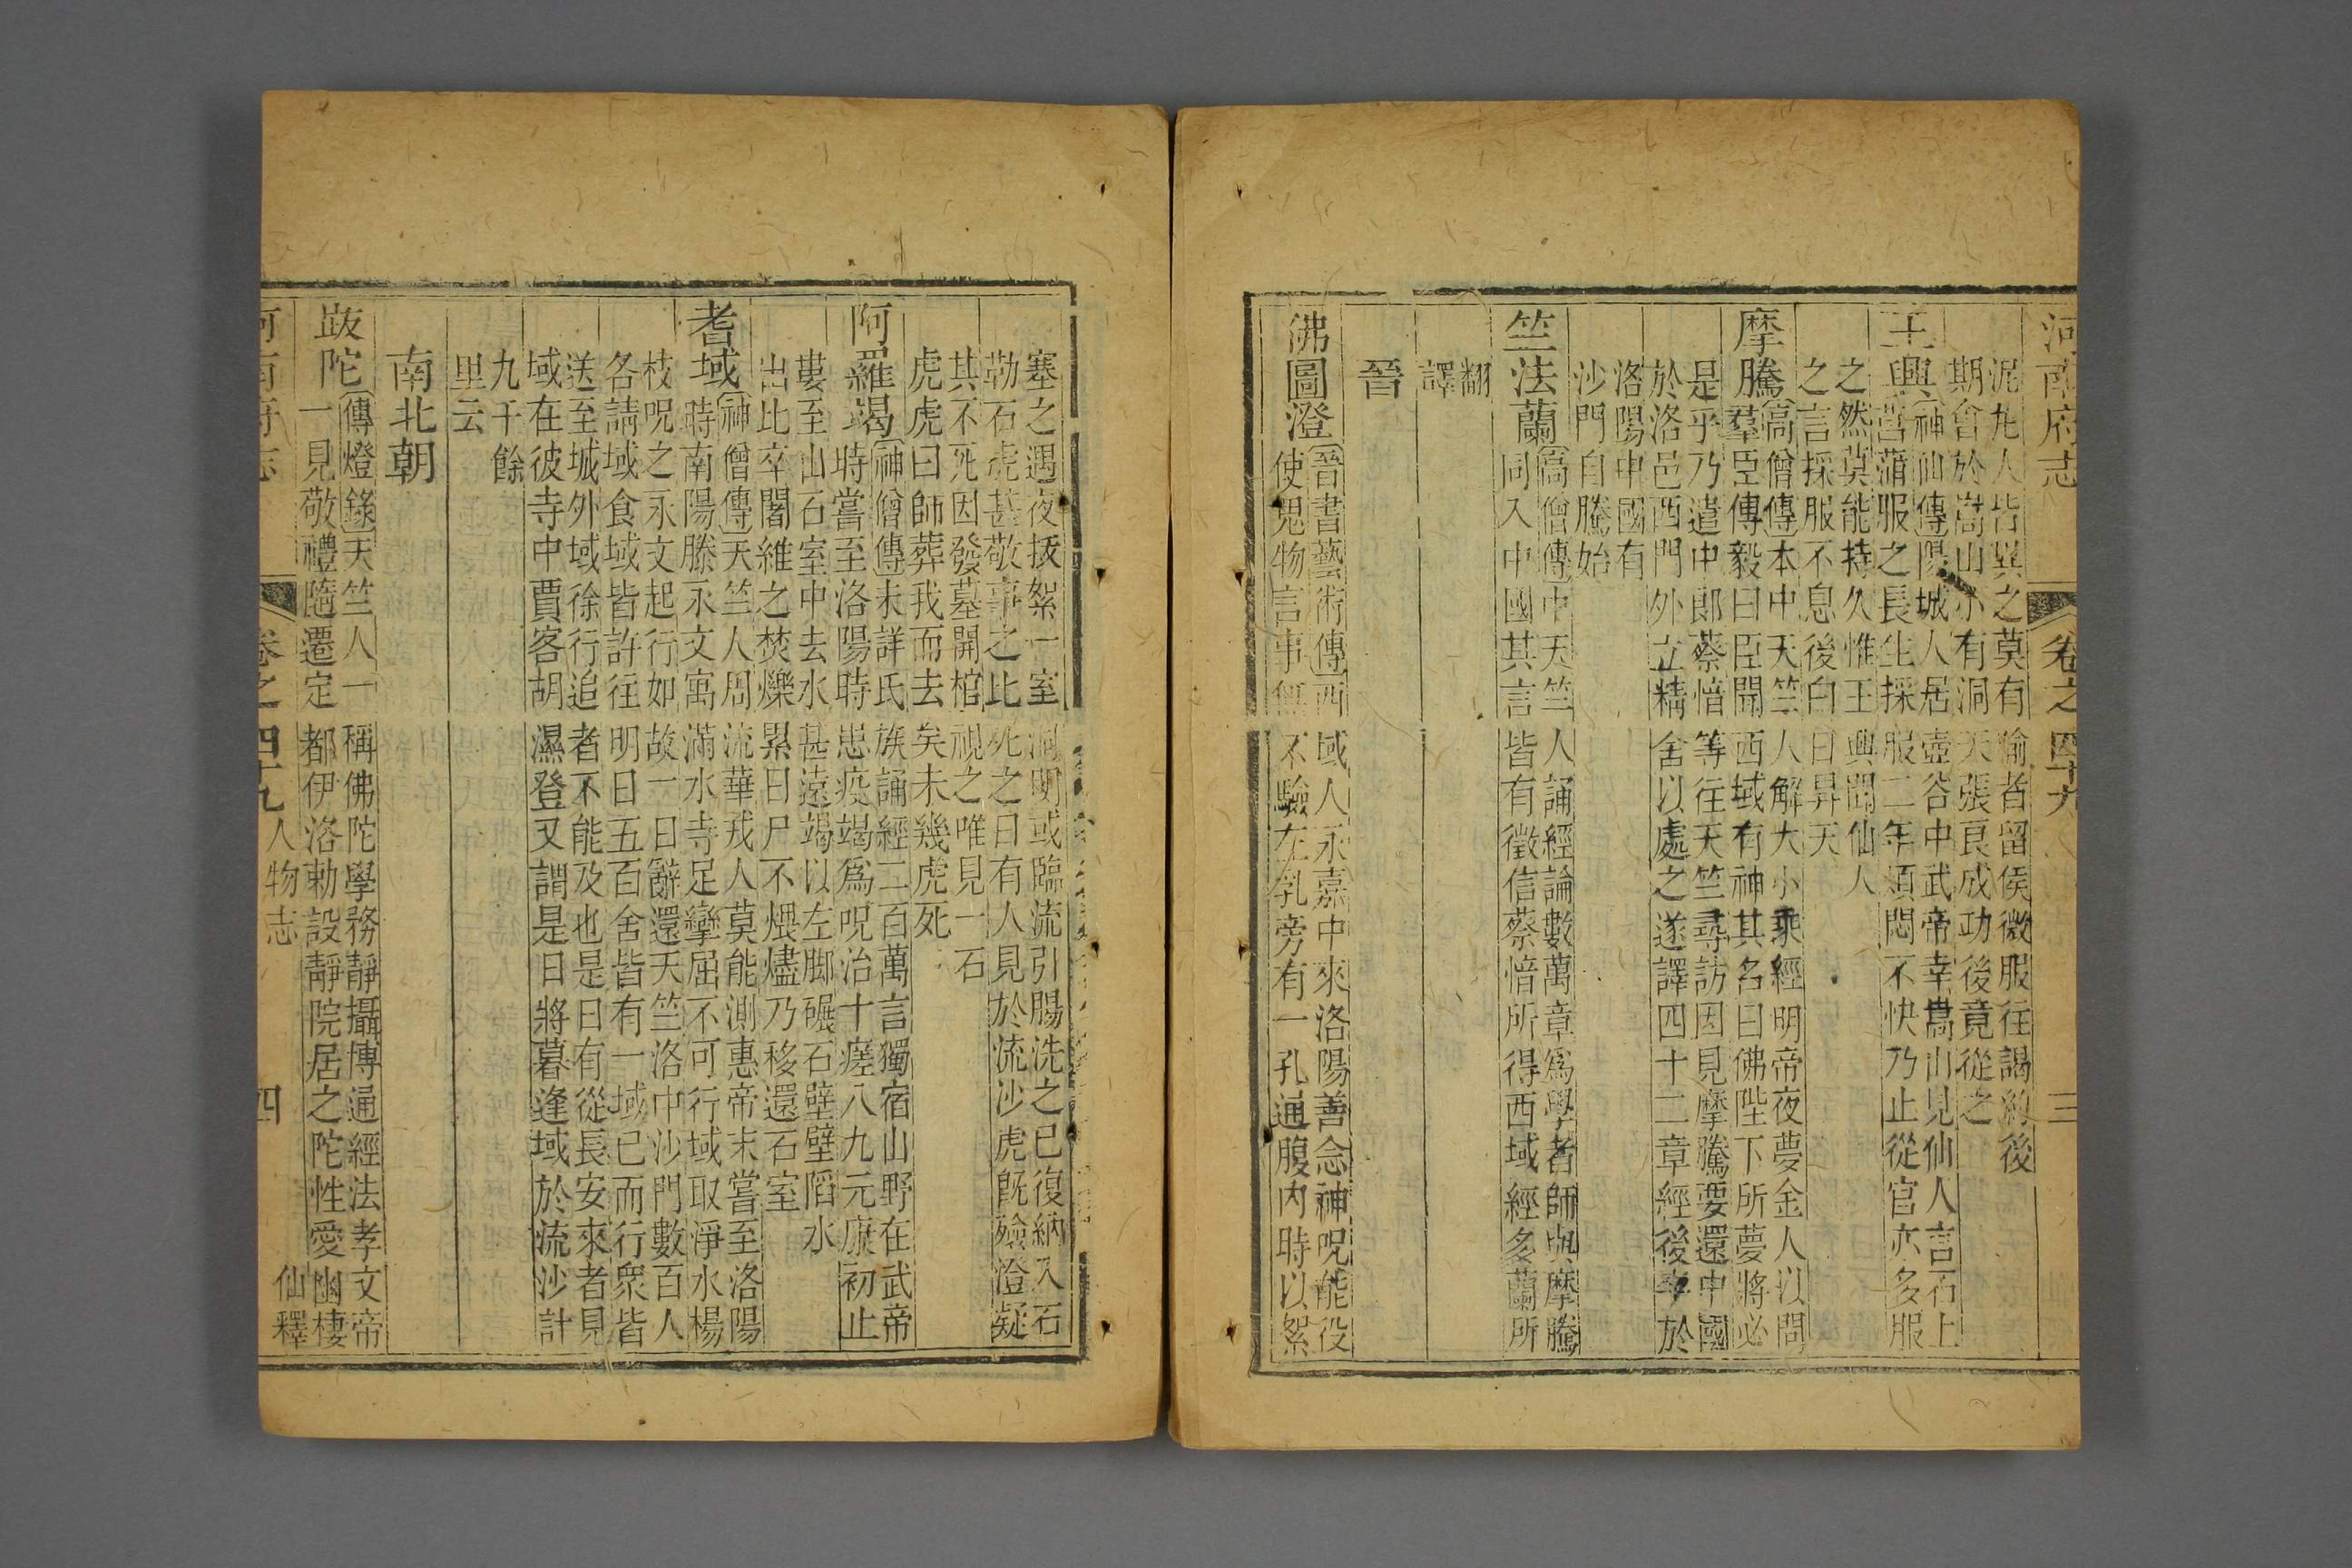 河南府志 卷之四十九 三
泥丸人皆異之莫有喻者留侯微服往謁約後
期會於嵩山小有洞天張良成功後竟從之
王興〔神仙傳〕陽城人居壺谷中武帝幸嵩山見仙人言石上
菖蒲服之長生採服二年須悶不快乃止從官亦多服
之然莫能持久惟王興聞仙人
之言採服不息後白日昇天
摩騰〔高僧傳〕本中天竺人解大小乘經明帝夜夢金人以問
羣臣傳毅曰臣聞西域有神其名曰佛陛下所夢將必
是乎乃遣中郎蔡愔等往天竺尋訪因見摩騰要還中國
於洛邑西門外立精舍以處之遂譯四十二章經後卒於
洛陽中國有
沙門自騰始
竺法蘭〔高僧傳〕中天竺人誦經論數萬章爲學者師與摩騰
同入中國其言皆有徵信蔡愔所得西域經多蘭所
翻
譯
晉
佛圖澄〔晉書藝術傳〕西域人永嘉中來洛陽善念神呪能役
使鬼物言事無不驗左乳旁有一孔通腹內時以絮
塞之遇夜拔絮一室洞明或臨流引腸洗之已復納入石
勒石虎甚敬事之比死之日有人見於流沙虎旣殮澄疑
其不死因發墓開棺視之唯見一石
虎虎曰師葬我而去矣未幾虎死
阿羅竭〔神僧傳〕未詳氏族誦經二百萬言獨宿山野在武帝
時嘗至洛陽時患疫竭爲呪治十瘥八九元康初止
婁至山石室中去水甚遠竭以左脚碾石壁壁陷水
出比卒闍維之焚爍累日尸不煨燼乃移還石室
耆域〔神僧傳〕天竺人周流華戎人莫能測惠帝末嘗至洛陽
時南陽滕永文寓滿水寺足攣屈不可行域取淨水楊
枝呪之永文起行如故一日辭還天竺洛中沙門數百人
各請域食域皆許往明日五百舍皆有一域已而行衆皆
送至城外域徐行追者不能及也是日有從長安來者見
域在彼寺中賈客胡濕登又謂是日將暮逢域於流沙計
九千餘
里云
南北朝
跋陀〔傳燈錄〕天竺人一稱佛陀學務靜攝博通經法孝文帝
一見敬禮隨遷定都伊洛勅設靜院居之陀性愛幽棲
河南府志 卷之四十九 人物志 四 仙釋